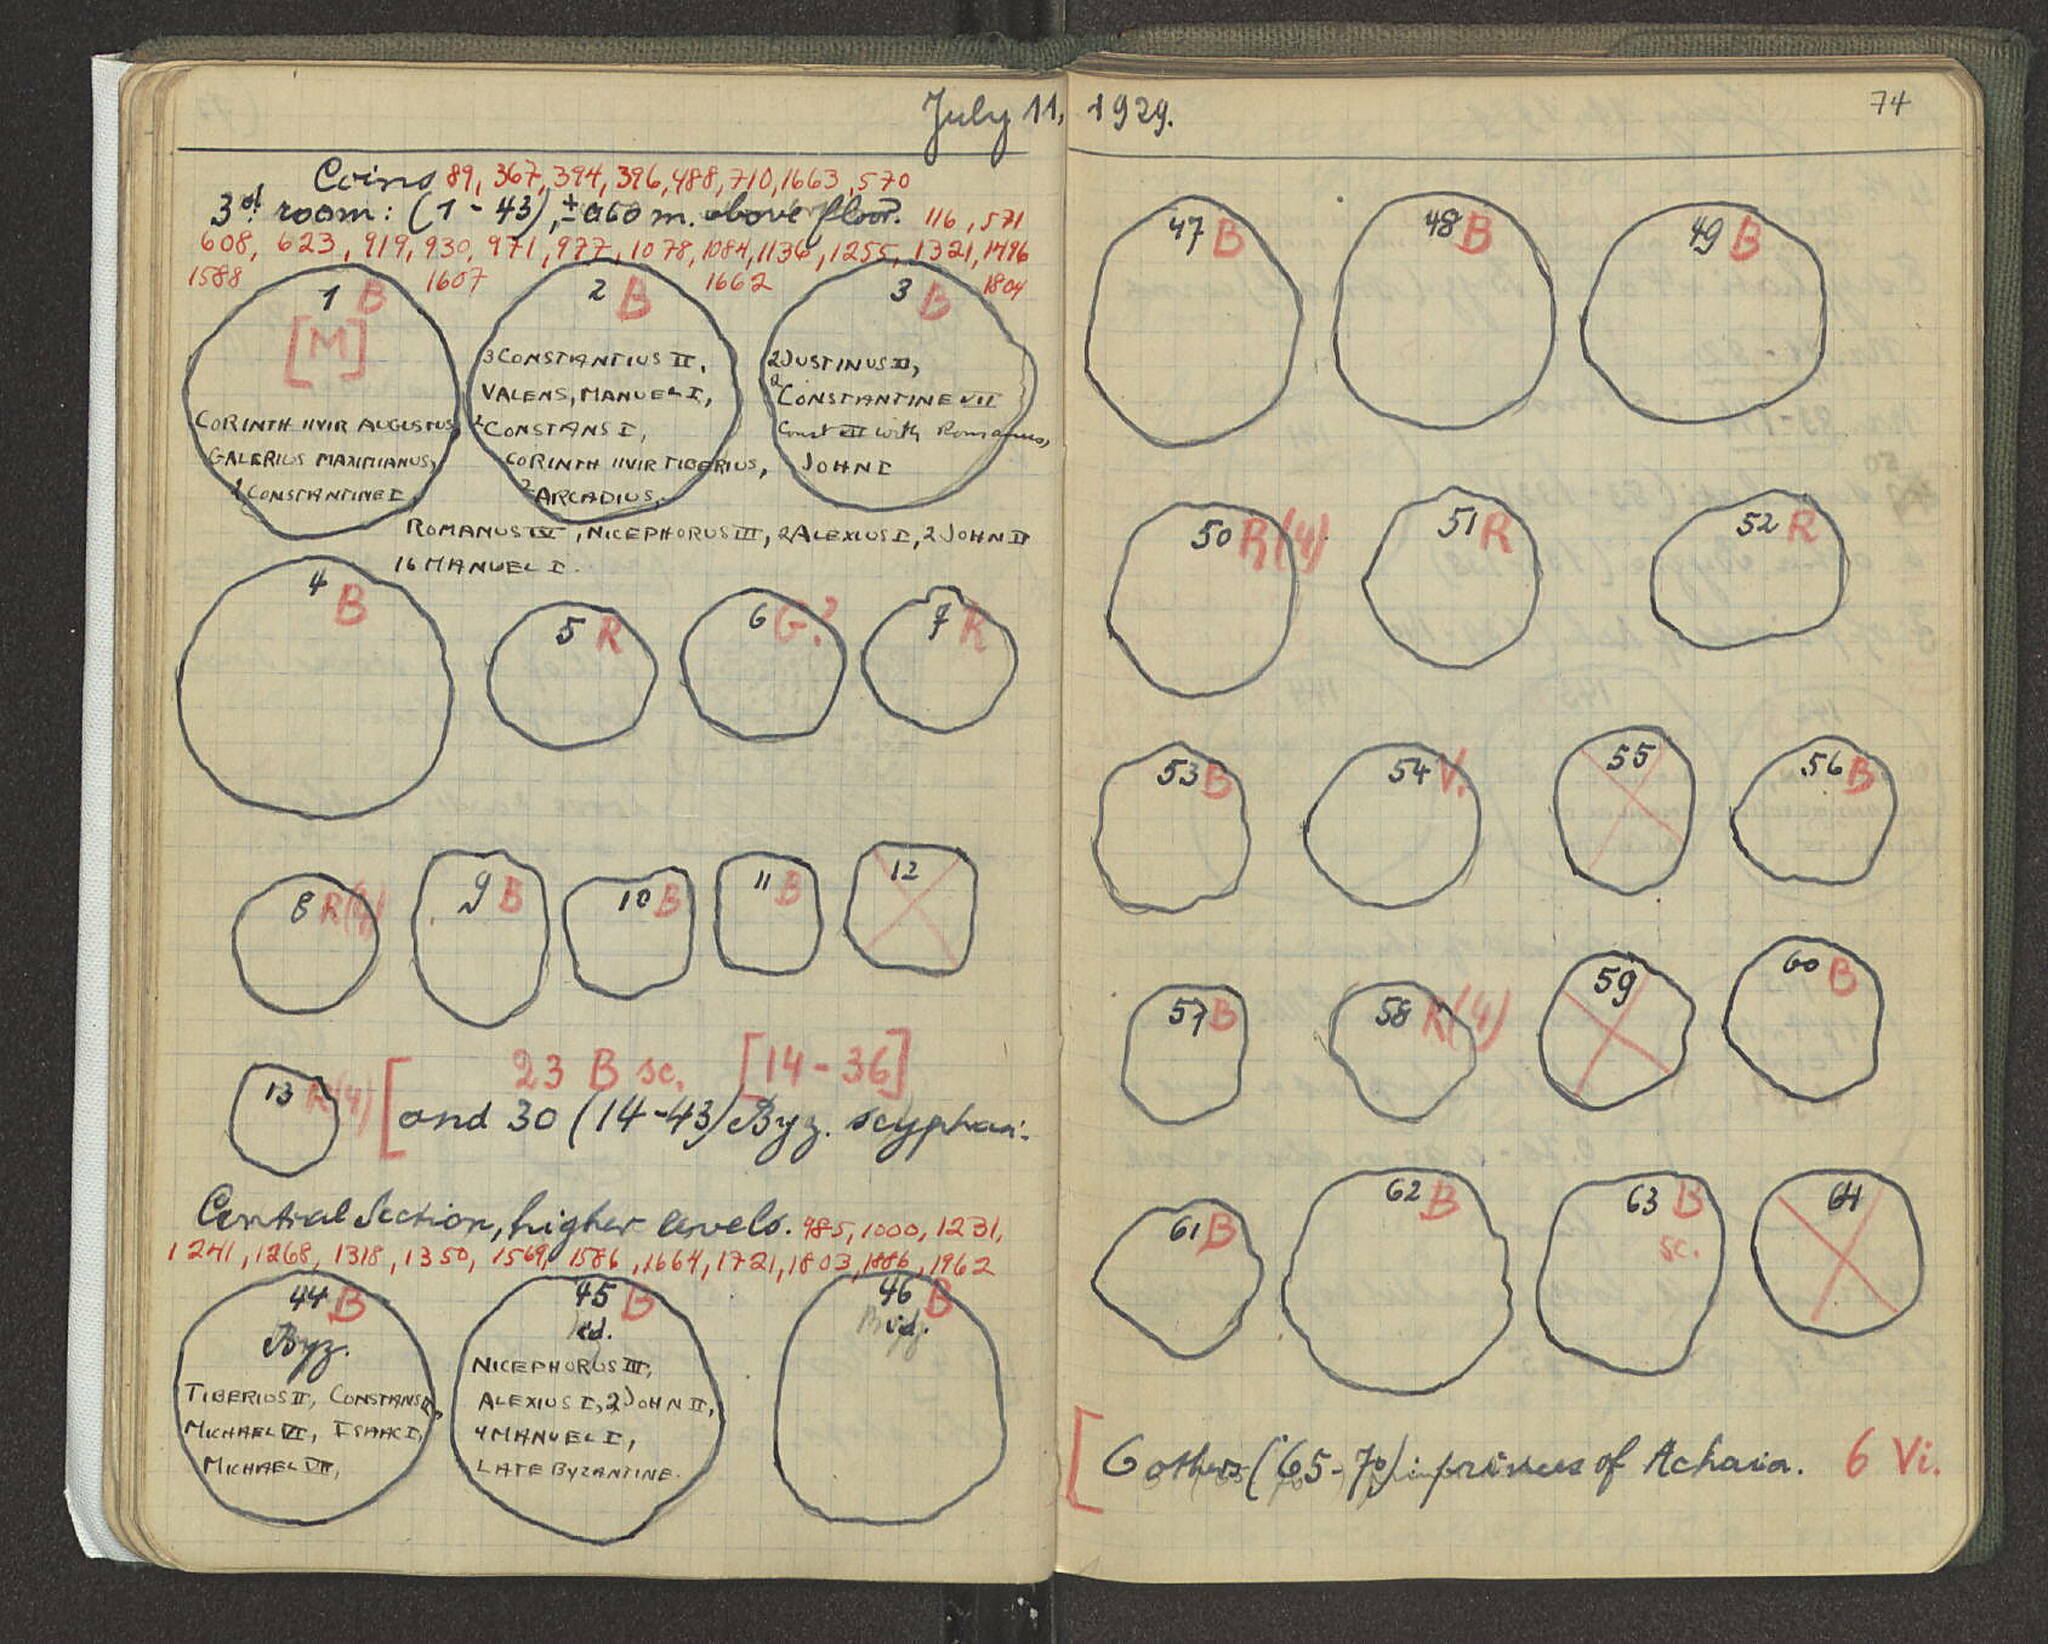 July 11, 1929.
74
Coins 89, 367, 394, 396, 488, 710, 1663, 570
3d. room: (1-43), ± 0.60 m. above floor. 116, 571
608, 623, 919, 930, 971, 977, 1078, 1084, 1136, 1255, 1321, 1496
1588 1607 1662 1804
1 B
[M]
CORINTH IIVIR AUGUSTUS
GALERIUS MAXIMIANUS,
CONSTANTINE I,
2 B
3 CONSTANTIUS II,
VALENS, MANUEL I,
2 CONSTANS I,
CORINTH IIVIR TIBERIUS,
2 ARCADIUS,
3 B
2 JUSTINUS II,
2 CONSTANTINE VII
Const VII with Romanus,
JOHN I
ROMANUS IV, NICEPHORUS III, 2 ALEXIUS I, 2 JOHN II
16 MANUEL I.
4 B
5 R
6 G?
7 R
8 R(4)
9 B
10 B
11 B
12
13 R(4)
23 B sc. [14-36]
[and 30 (14-43) Byz. scyphati.
Central Section, higher levels. 985, 1000, 1231,
1241, 1268, 1318, 1350, 1569, 1586, 1664, 1721, 1803, 1886, 1962
44 B
Byz.
TIBERIUS II, CONSTANS II,
MICHAEL VI, ISAAC I,
MICHAEL VII,
45 B
id.
NICEPHORUS III,
ALEXIUS I, 2 JOHN II,
4 MANUEL I,
LATE BYZANTINE.
46 B
id.
47 B
48 B
49 B
50 R(4)
51 R
52 R
53 B
54 V.
55
56 B
57 B
58 R(4)
59
60 B
61 B
62 B
63 B
sc.
64
[6 others (65-70) princes of Achaia. 6 Vi.